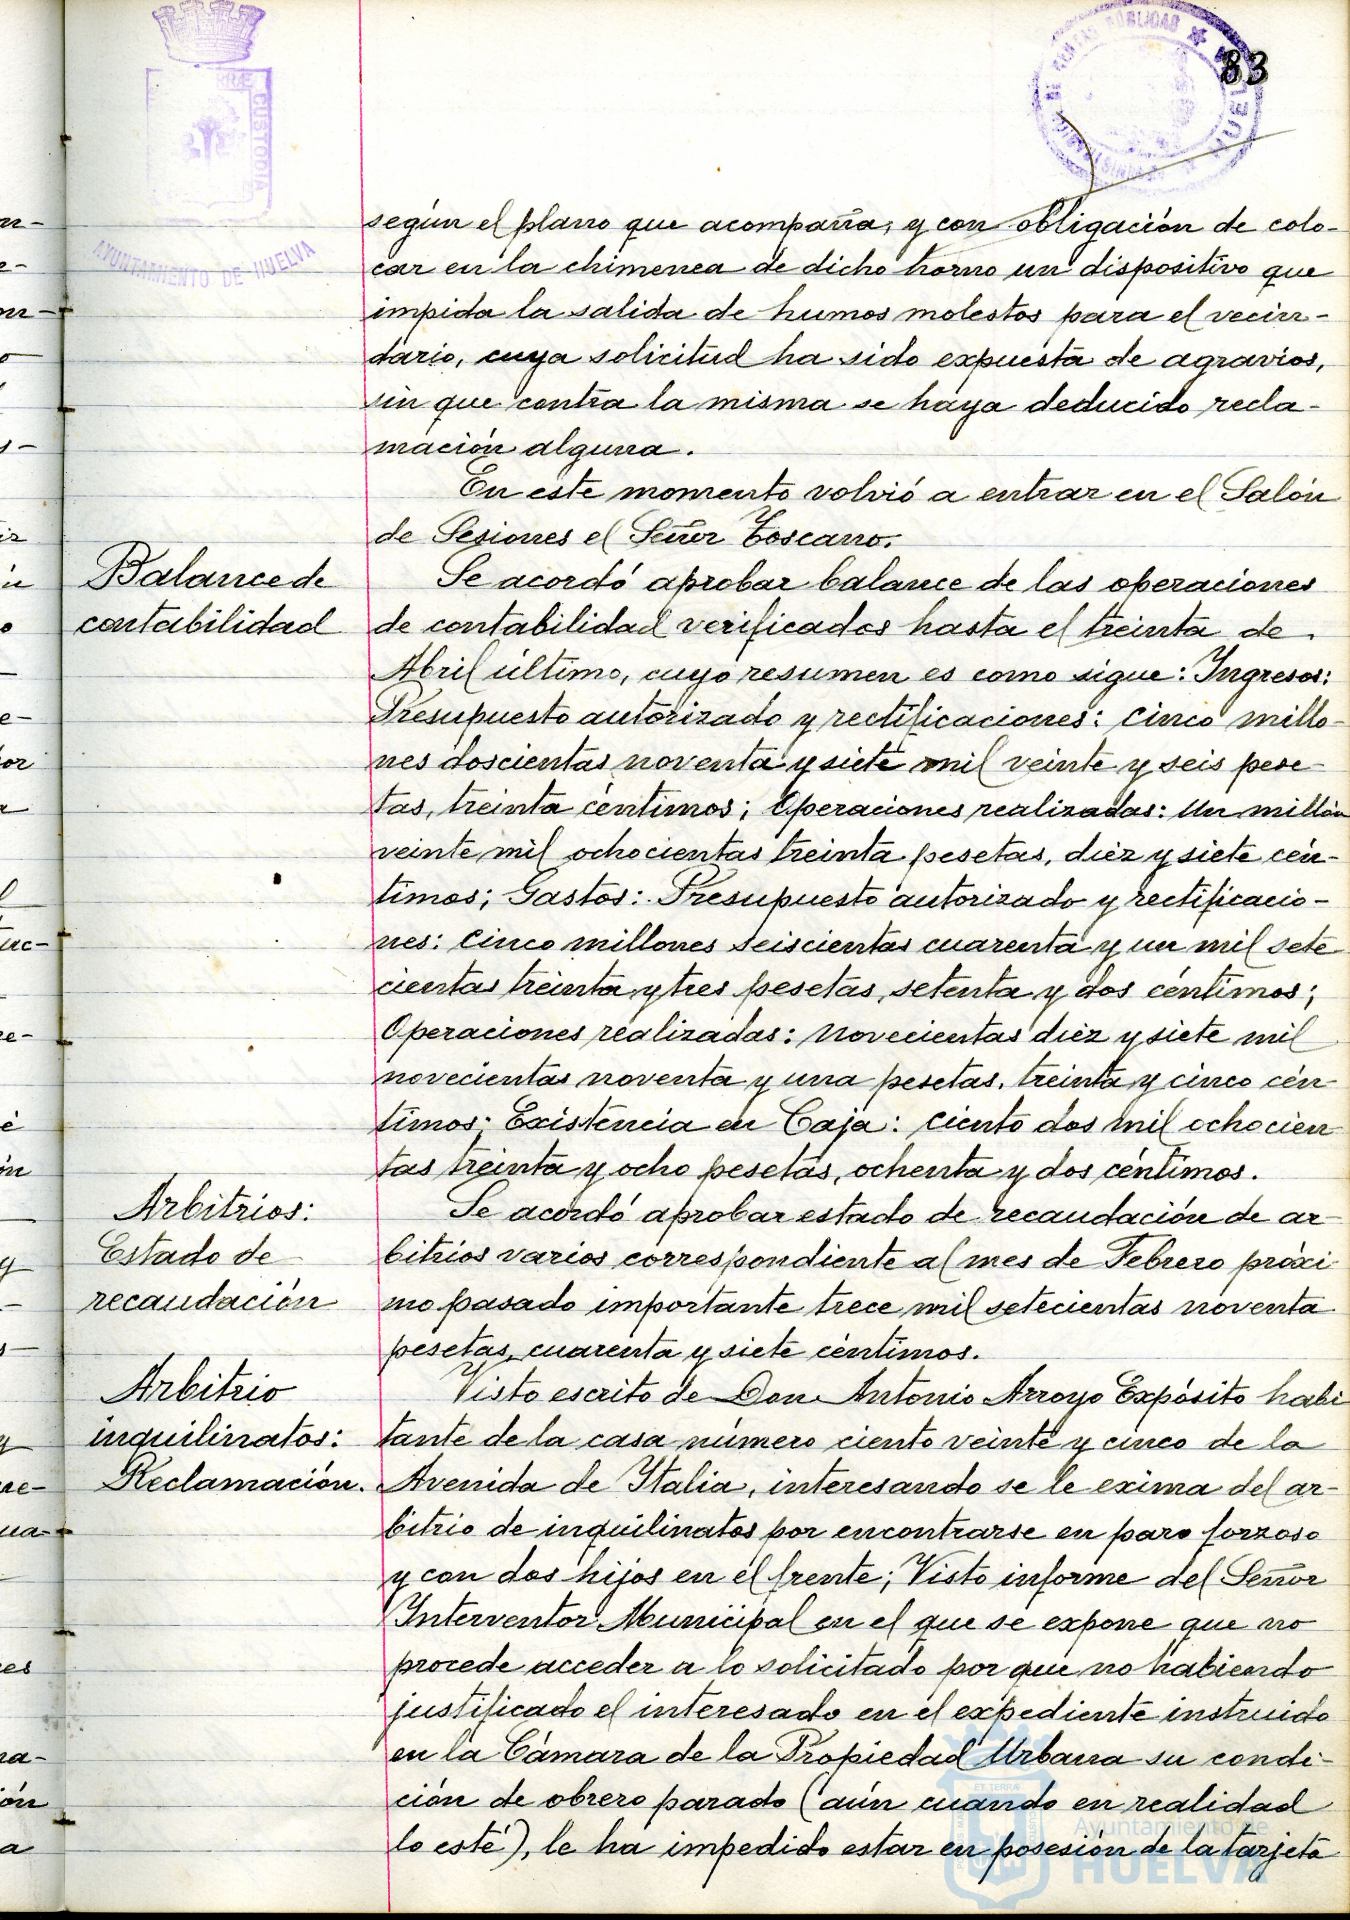 83
AYUNTAMIENTO DE HUELVA
CUSTODIA
según el plano que acompaña; y con obligación de colo-
car en la chimenea de dicho horno un dispositivo que
impida la salida de humos molestos para el vecin-
dario, cuya solicitud ha sido expuesta de agravios,
sin que contra la misma se haya deducido recla-
mación alguna.
En este momento volvió a entrar en el Salón
de Sesiones el Señor Toscano.
Balance de
contabilidad
Se acordó aprobar balance de las operaciones
de contabilidad verificados hasta el treinta de
Abril último, cuyo resumen es como sigue: Ingresos:
Presupuesto autorizado y rectificaciones: Cinco millo-
nes doscientas noventa y siete mil veinte y seis pese-
tas, treinta céntimos; Operaciones realizadas: Un millón
veinte mil ochocientas treinta pesetas, diez y siete cén-
timos; Gastos: Presupuesto autorizado y rectificacio-
nes: Cinco millones seiscientas cuarenta y un mil sete
cientas treinta y tres pesetas, setenta y dos céntimos;
Operaciones realizadas: Novecientas diez y siete mil
novecientas noventa y una pesetas, treinta y cinco cén-
timos; Existencia en Caja: Ciento dos mil ochocien
tas treinta y ocho pesetas, ochenta y dos céntimos.
Arbitrios:
Estado de
recaudación
Se acordó aprobar estado de recaudación de ar-
bitrios varios correspondiente al mes de Febrero próxi-
mo pasado importante trece mil setecientas noventa
pesetas, cuarenta y siete céntimos.
Arbitrio
inquilinatos:
Reclamación.
Visto escrito de Don Antonio Arroyo Expósito habi
tante de la casa número ciento veinte y cinco de la
Avenida de Italia, interesando se le exima del ar-
bitrio de inquilinatos por encontrarse en paro forzoso
y con dos hijos en el frente; Visto informe del Señor
Interventor Municipal en el que se expone que no
procede acceder a lo solicitado por que no habiendo
justificado el interesado en el expediente instruido
en la Cámara de la Propiedad Urbana su condi-
ción de obrero parado (aún cuando en realidad
lo esté), le ha impedido estar en posesión de la tarjeta
Ayuntamiento de
HUELVA